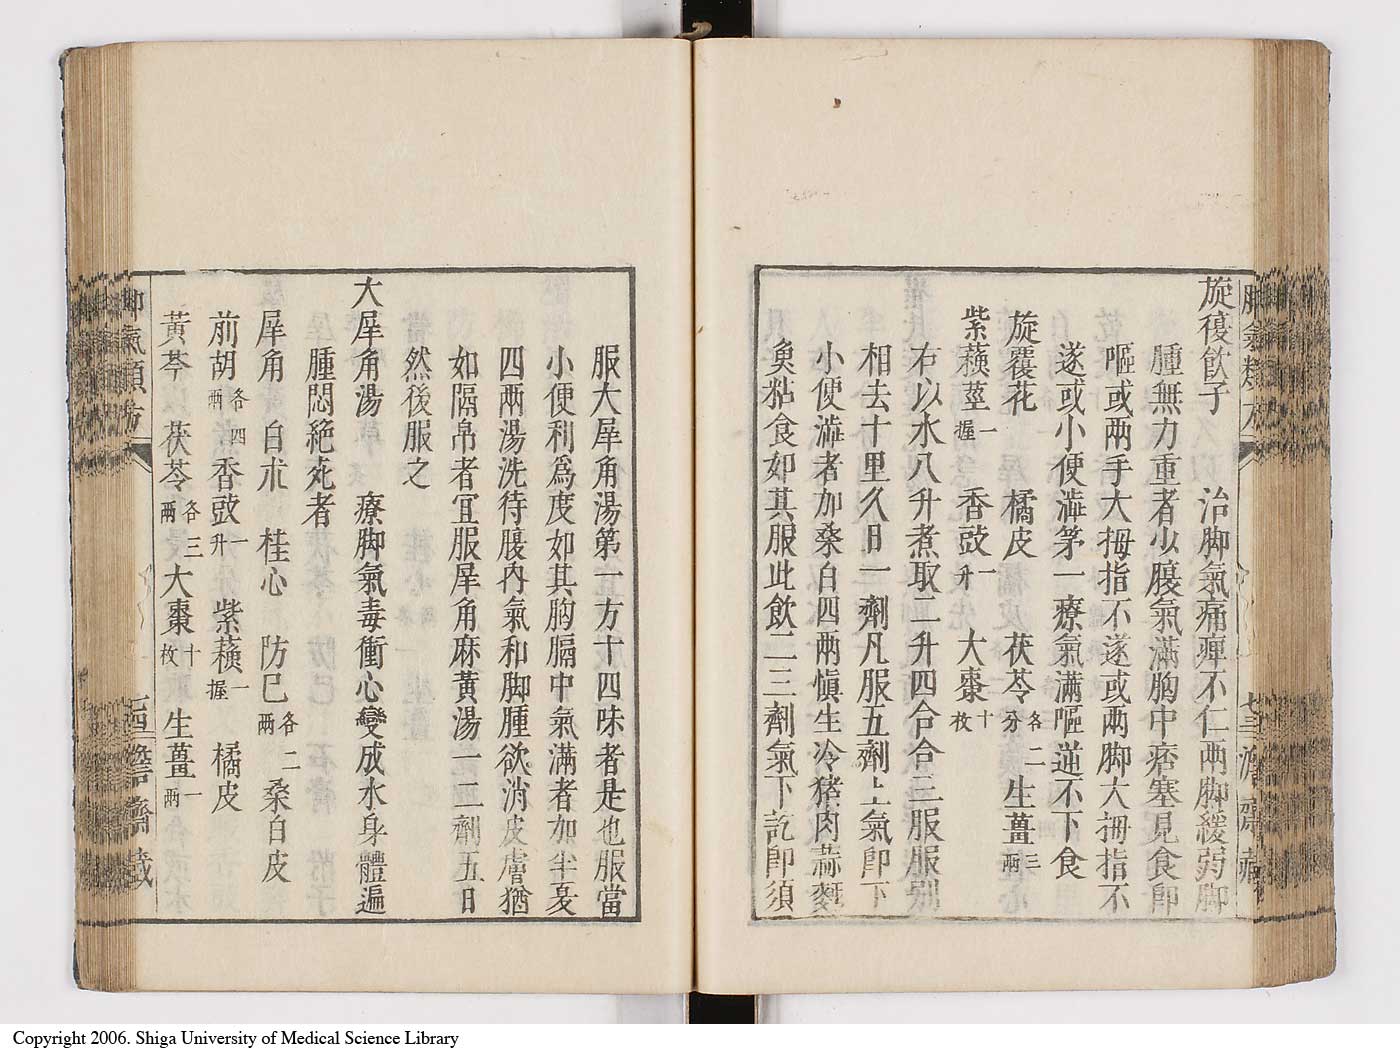 旋覆飲子　治脚氣痛痺不仁兩脚緩弱脚
腫無力重者少腹氣滿胸中痞塞見食即
嘔或兩手大拇指不遂或兩脚大拇指不
遂或小便澁第一療氣滿嘔逆不下食
旋覆花　橘皮　茯苓各二分　生薑三兩
紫蘓莖一握　香豉一升　大棗十枚
右以水八升煮取二升四合合三服服别
相去十里久日一劑凡服五劑上氣即下
小便澁者加桒白四兩愼生冷猪肉蒜麵
魚粘食如其服此飲二三劑氣下訖即須
服大犀角湯第一方十四味者是也服當
小便利爲度如其胸膈中氣滿者加半夏
四兩湯洗待腹内氣和脚腫欲消皮膚猶
如隔帛者宜服犀角麻黄湯一二劑五日
然後服之
大犀角湯　療脚氣毒衝心變成水身體遍
腫悶絶死者
犀角　白朮　桂心　防巳各二兩　桑白皮
前胡各四兩　香豉一升　紫蘓一握　橘皮
黃芩　茯苓各三兩　大棗十枚　生薑一兩
脚氣類方
Copyright 2006. Shiga University of Medical Science Library